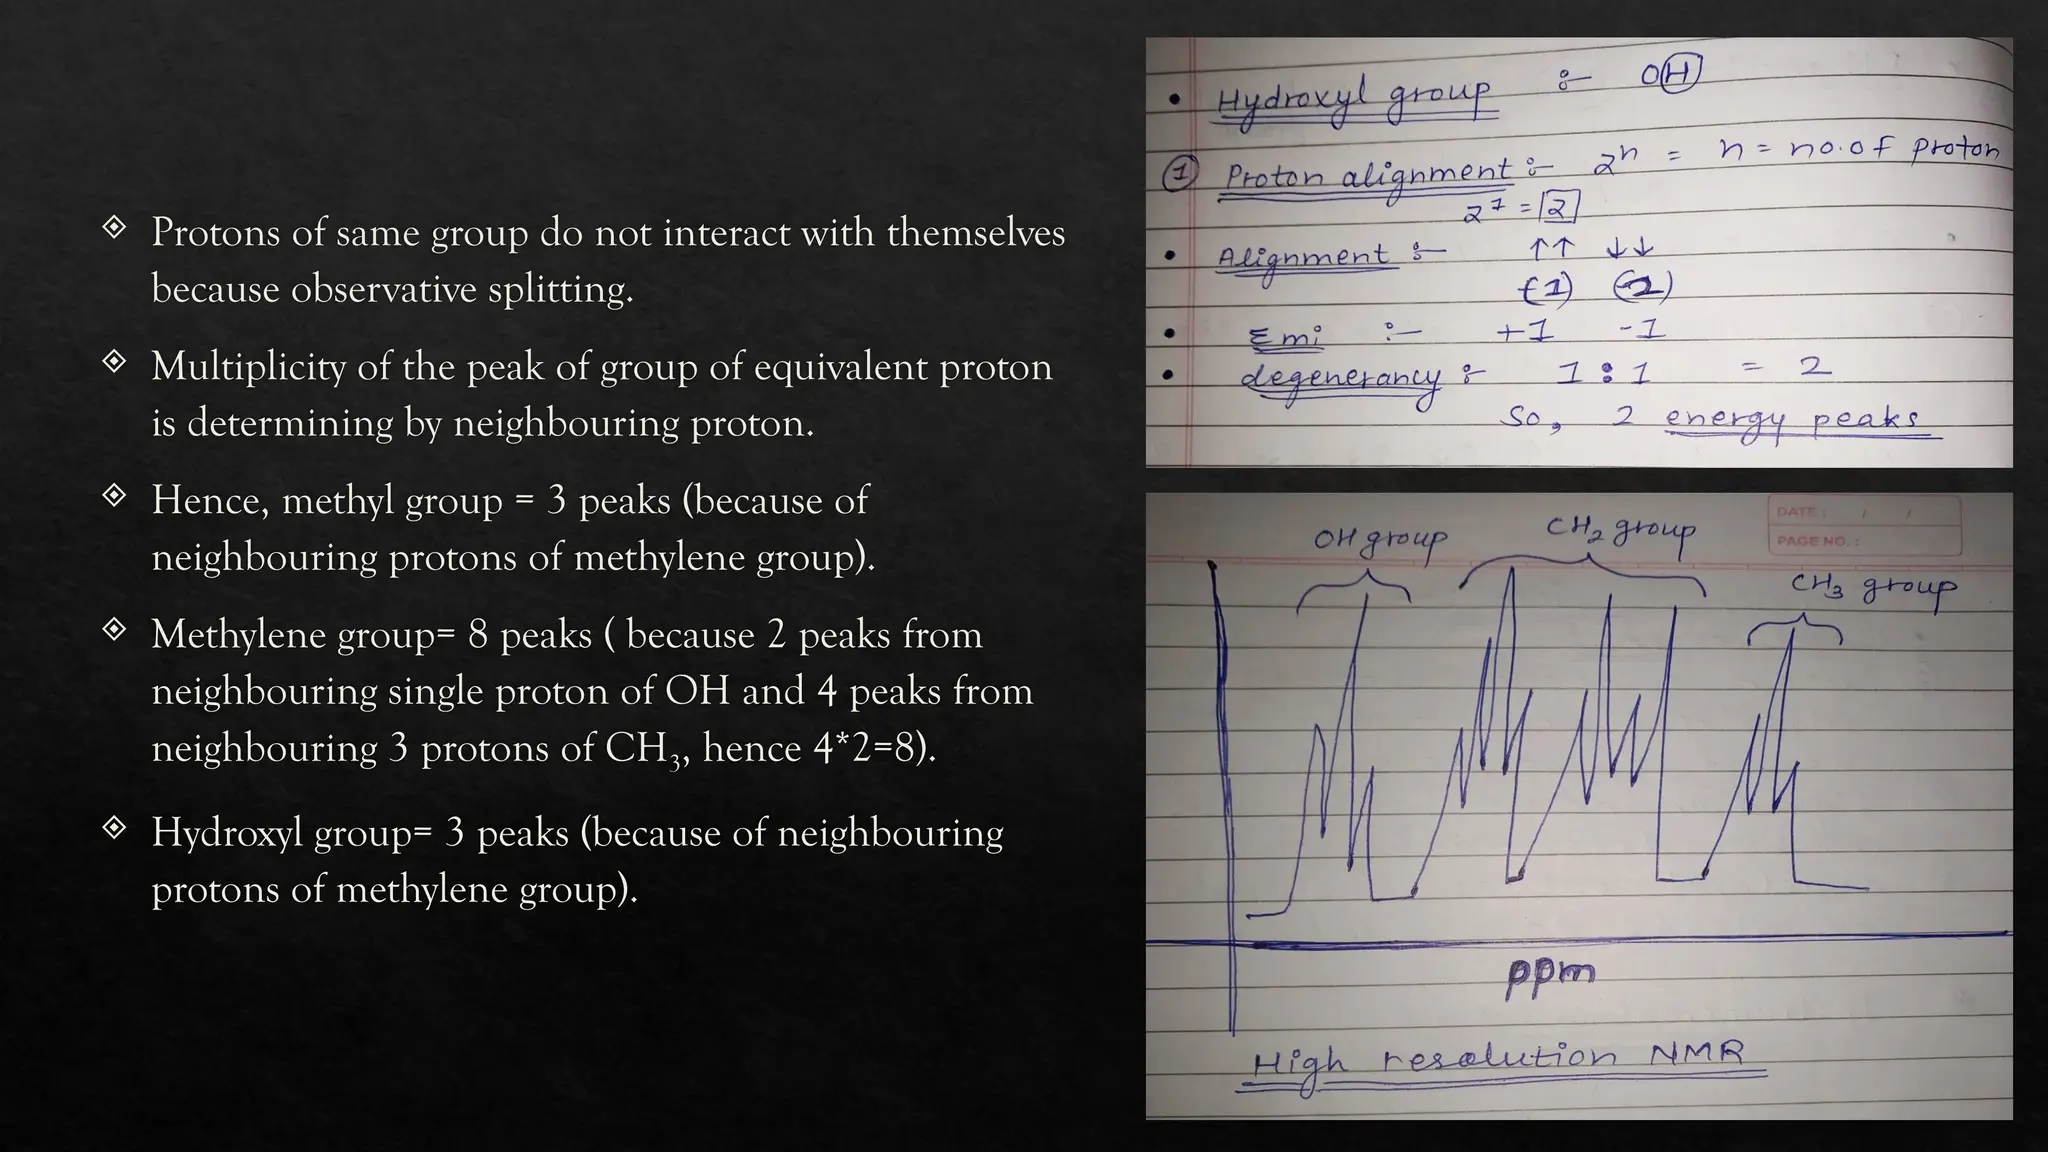 Protons of same group do not interact with themselves
because observative splitting.
Multiplicity of the peak of group of equivalent proton
is determining by neighbouring proton.
Hence, methyl group = 3 peaks (because of
neighbouring protons of methylene group).
Methylene group= 8 peaks ( because 2 peaks from
neighbouring single proton of OH and 4 peaks from
neighbouring 3 protons of CH₃, hence 4*2=8).
Hydroxyl group= 3 peaks (because of neighbouring
protons of methylene group).
• Hydroxyl group :- OH
① Proton alignment :- 2ⁿ = n = no. of proton
2¹ = 2
• Alignment :- ↑↑ ↓↓
(1)
• Σmi :- +1 -1
• degenerancy :- 1 : 1 = 2
So, 2 energy peaks
DATE : / /
PAGE NO. :
OH group CH₂ group
CH₃ group
ppm
High resolution NMR